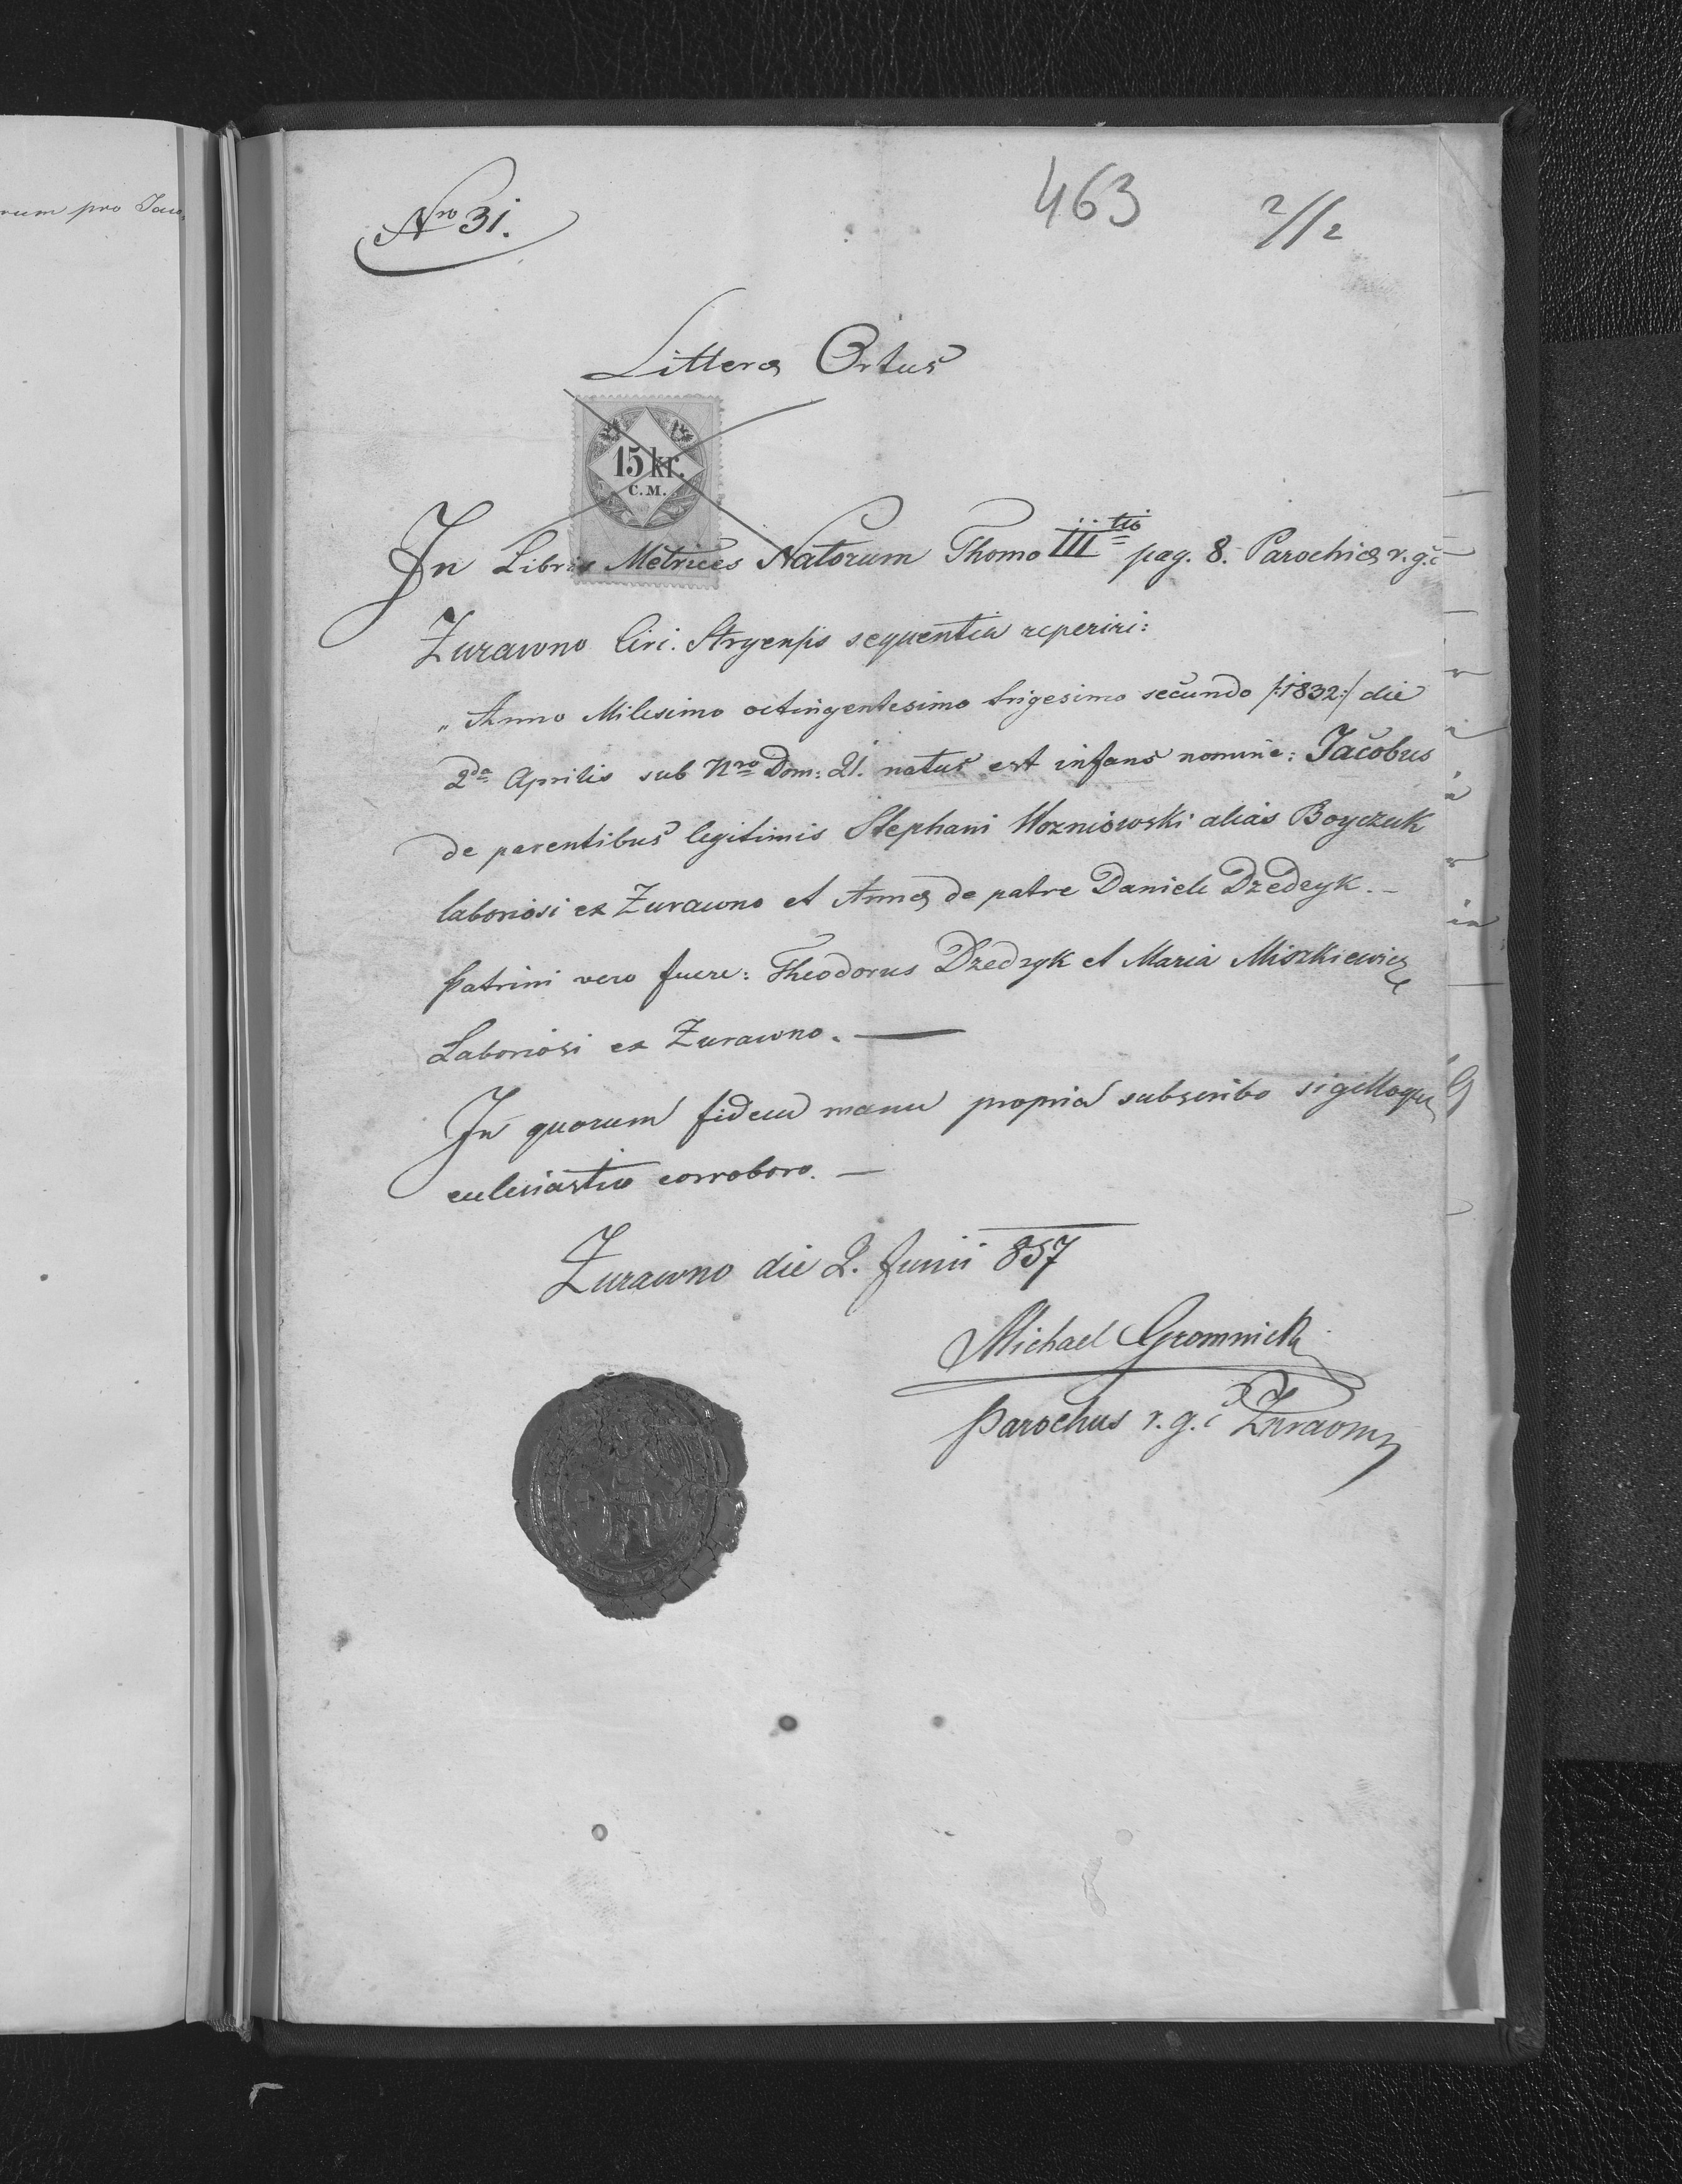 rum pro Jaco
Nro 31.
463
2/2
Litteræ Ortus
15 kr.
C.M.
In Libris Metrices Natorum Thomo III tio pag. 8. Parochiæ r.g.c
Zurawno Circ. Stryensis sequentia reperiri:
„Anno Milesimo octingentesimo trigesimo secundo /:1832:/ die
2da Aprilis sub Nro Dom: 21. natus est infans nomine: Jacobus
de parentibus legitimis Stephani Wozniowski alias Boyczuk
laboriosi ex Zurawno et Annæ de patre Daniele Dzedzyk.–
patrini vero fuere: Theodorus Dzedzyk et Maria Miszkiewicz
Laboriosi ex Zurawno. —
In quorum fidem manu propria subscribo sigilloque
eclesiastico corroboro. —
Zurawno die 2. Junii 857
Michael Gromnicki
Parochus r.g.c